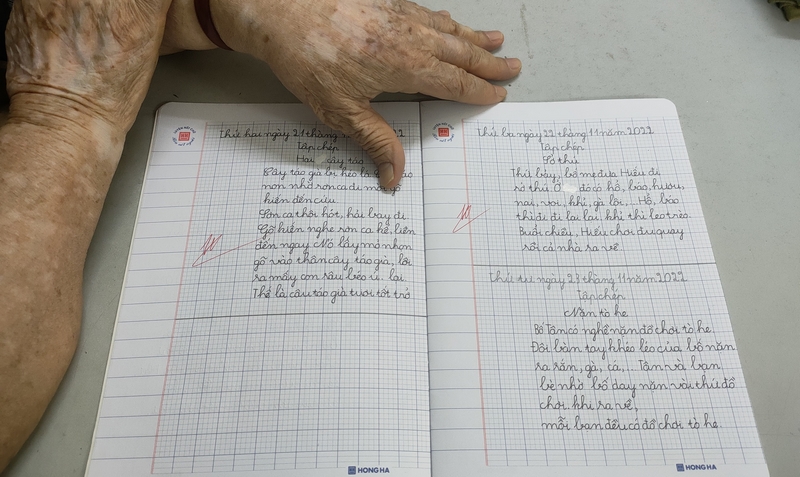 Thứ hai ngày 21 tháng
Tập chép
Hai cây táo
Cây táo già bị héo lá
non nhờ sơn ca đi mời gõ
kiến đến cứu.
Sơn ca thôi hót, hối bay đi.
Gõ kiến nghe sơn ca kể, liền
đến ngay. Nó lấy mỏ nhọn
gõ vào thân cây táo già, lôi
ra mấy con sâu béo ú. lại.
Thế là cây táo già tươi tốt trở
HONG HA
Thứ ba ngày 22 tháng 11 năm 2022
Tập chép
Sở thú
Thứ bảy, bố mẹ đưa Hiếu đi
sở thú. Ở đó có hổ, báo, hươu,
nai, voi, khỉ, gà lôi,... Hổ, báo
thì đi đi lại lại, khỉ thì leo trèo.
Buổi chiều, Hiếu chơi đu quay
rồi cả nhà ra về
Thứ tư ngày 23 tháng 11 năm 2022
Tập chép
Nặn tò he
Bố Tâm có nghề nặn đồ chơi tò he.
Đôi bàn tay khéo léo của bố nặn
ra rắn, gà, cá,... Tâm và bạn
bè nhờ bố dạy nặn vài thứ đồ
chơi. khi ra về,
mỗi bạn đều có đồ chơi tò he.
HONG HA